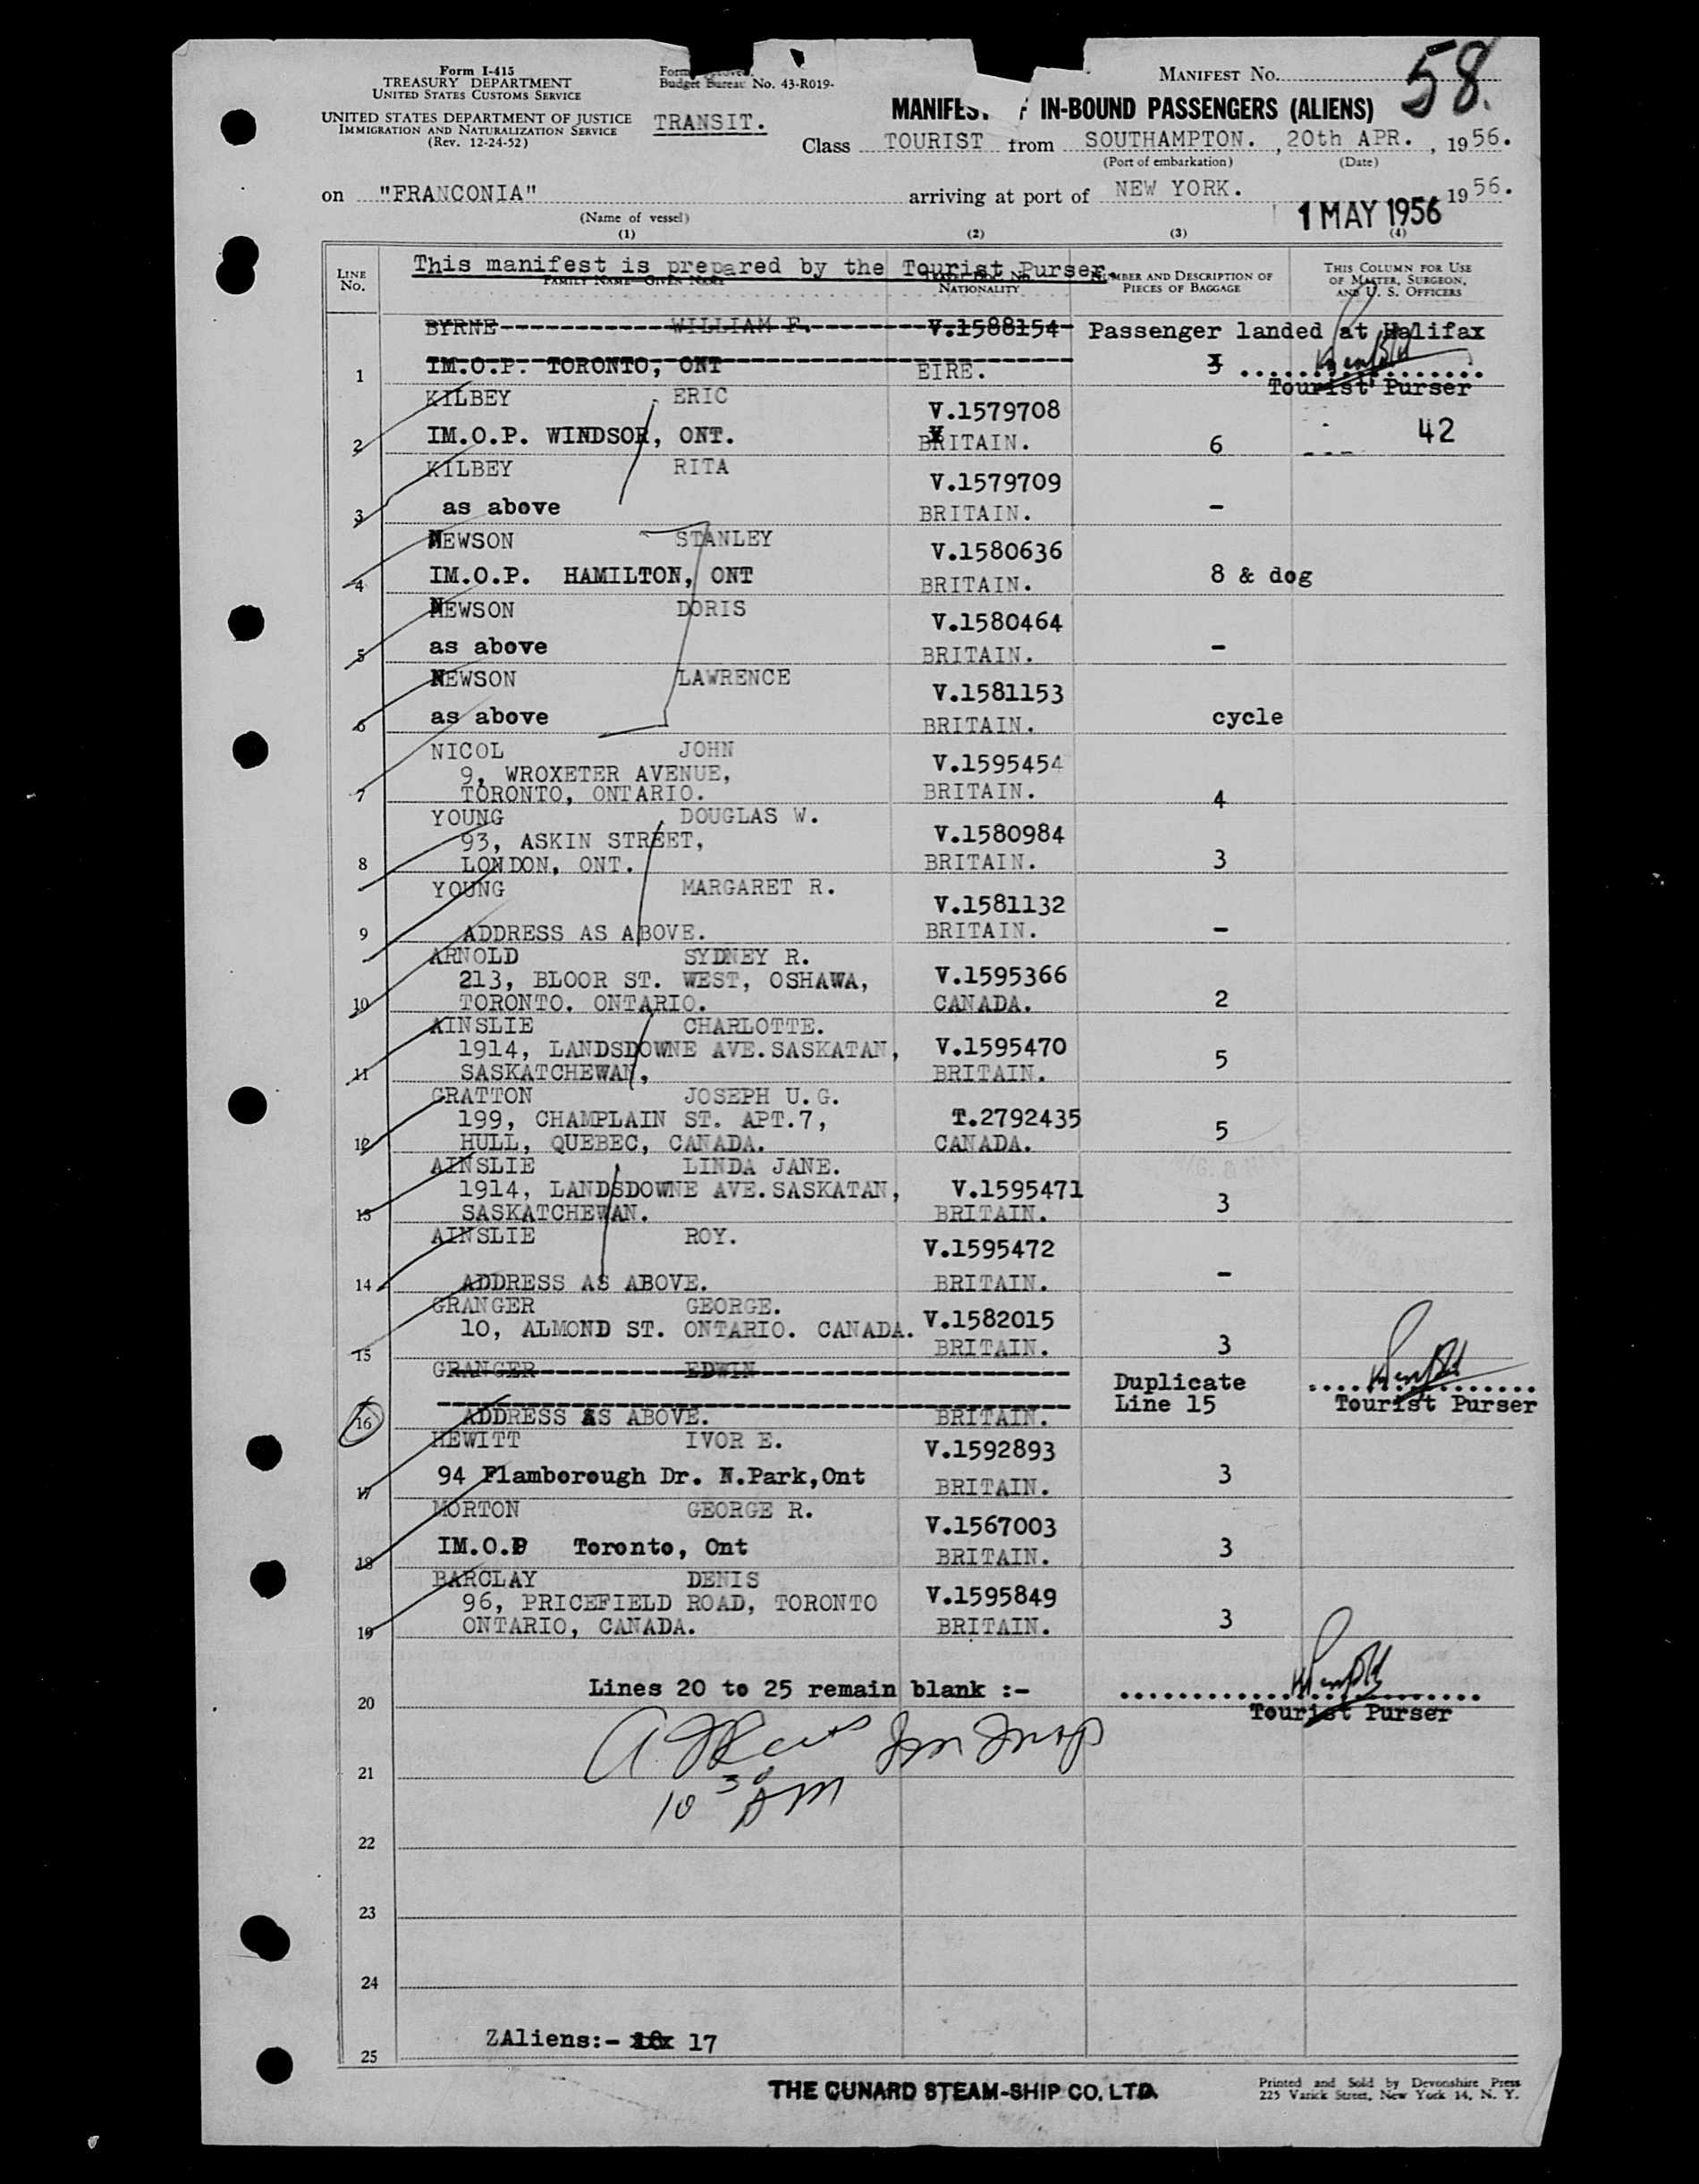 Form I-415
TREASURY DEPARTMENT
UNITED STATES CUSTOMS SERVICE
UNITED STATES DEPARTMENT OF JUSTICE
IMMIGRATION AND NATURALIZATION SERVICE
(Rev. 12-24-52)
Budget Bureau No. 43-R019-
TRANSIT.
MANIFEST No. 58.
IN-BOUND PASSENGERS (ALIENS)
Class TOURIST from SOUTHAMPTON. , 20th APR. , 1956.
(Port of embarkation) (Date)
on "FRANCONIA" arriving at port of NEW YORK. 1956.
1 MAY 1956
(Name of vessel)
(1) (2) (3) (4)
This manifest is prepared by the Tourist Purser.
LINE No. FAMILY NAME—GIVEN NAME NATIONALITY NUMBER AND DESCRIPTION OF PIECES OF BAGGAGE THIS COLUMN FOR USE OF MASTER, SURGEON, AND U. S. OFFICERS
BYRNE WILLIAM F. V.1588154 Passenger landed at Halifax
1 IM.O.P. TORONTO, ONT EIRE.
Tourist Purser
KILBEY ERIC V.1579708
2 IM.O.P. WINDSOR, ONT. BRITAIN. 6 42
KILBEY RITA V.1579709
3 as above BRITAIN. -
NEWSON STANLEY V.1580636
4 IM.O.P. HAMILTON, ONT BRITAIN. 8 & dog
NEWSON DORIS V.1580464
5 as above BRITAIN. -
NEWSON LAWRENCE V.1581153
6 as above BRITAIN. cycle
NICOL JOHN V.1595454
9, WROXETER AVENUE,
7 TORONTO, ONTARIO. BRITAIN. 4
YOUNG DOUGLAS W. V.1580984
93, ASKIN STREET,
8 LONDON, ONT. BRITAIN. 3
YOUNG MARGARET R. V.1581132
9 ADDRESS AS ABOVE. BRITAIN. -
ARNOLD SYDNEY R. V.1595366
213, BLOOR ST. WEST, OSHAWA,
10 TORONTO. ONTARIO. CANADA. 2
AINSLIE CHARLOTTE.
1914, LANDSDOWNE AVE.SASKATAN, V.1595470 5
11 SASKATCHEWAN, BRITAIN.
GRATTON JOSEPH U.G.
199, CHAMPLAIN ST. APT.7, T.2792435 5
12 HULL, QUEBEC, CANADA. CANADA.
AINSLIE LINDA JANE.
1914, LANDSDOWNE AVE.SASKATAN, V.1595471 3
13 SASKATCHEWAN. BRITAIN.
AINSLIE ROY. V.1595472
14 ADDRESS AS ABOVE. BRITAIN. -
GRANGER GEORGE. V.1582015
10, ALMOND ST. ONTARIO. CANADA.
15 BRITAIN. 3
GRANGER EDWIN Duplicate
Line 15 Tourist Purser
16 ADDRESS AS ABOVE. BRITAIN.
HEWITT IVOR E. V.1592893
17 94 Flamborough Dr. N.Park,Ont BRITAIN. 3
MORTON GEORGE R. V.1567003
18 IM.O.P Toronto, Ont BRITAIN. 3
BARCLAY DENIS V.1595849
96, PRICEFIELD ROAD, TORONTO
19 ONTARIO, CANADA. BRITAIN. 3
Lines 20 to 25 remain blank :-
20 Tourist Purser
21
10 30 AM
22
23
24
ZAliens:- 17
25
THE CUNARD STEAM-SHIP CO. LTD.
Printed and Sold by Devonshire Press
225 Varick Street, New York 14, N. Y.